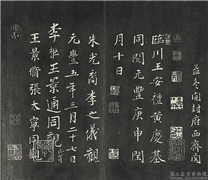 益冬開封府西齋閱
臨川王安禮黃慶基
同閱元豐庚申閏
月十日
朱光裔李之儀觀
元豐五年三月二十七日
李彥王寀通同觀
王景脩張太寧同觀